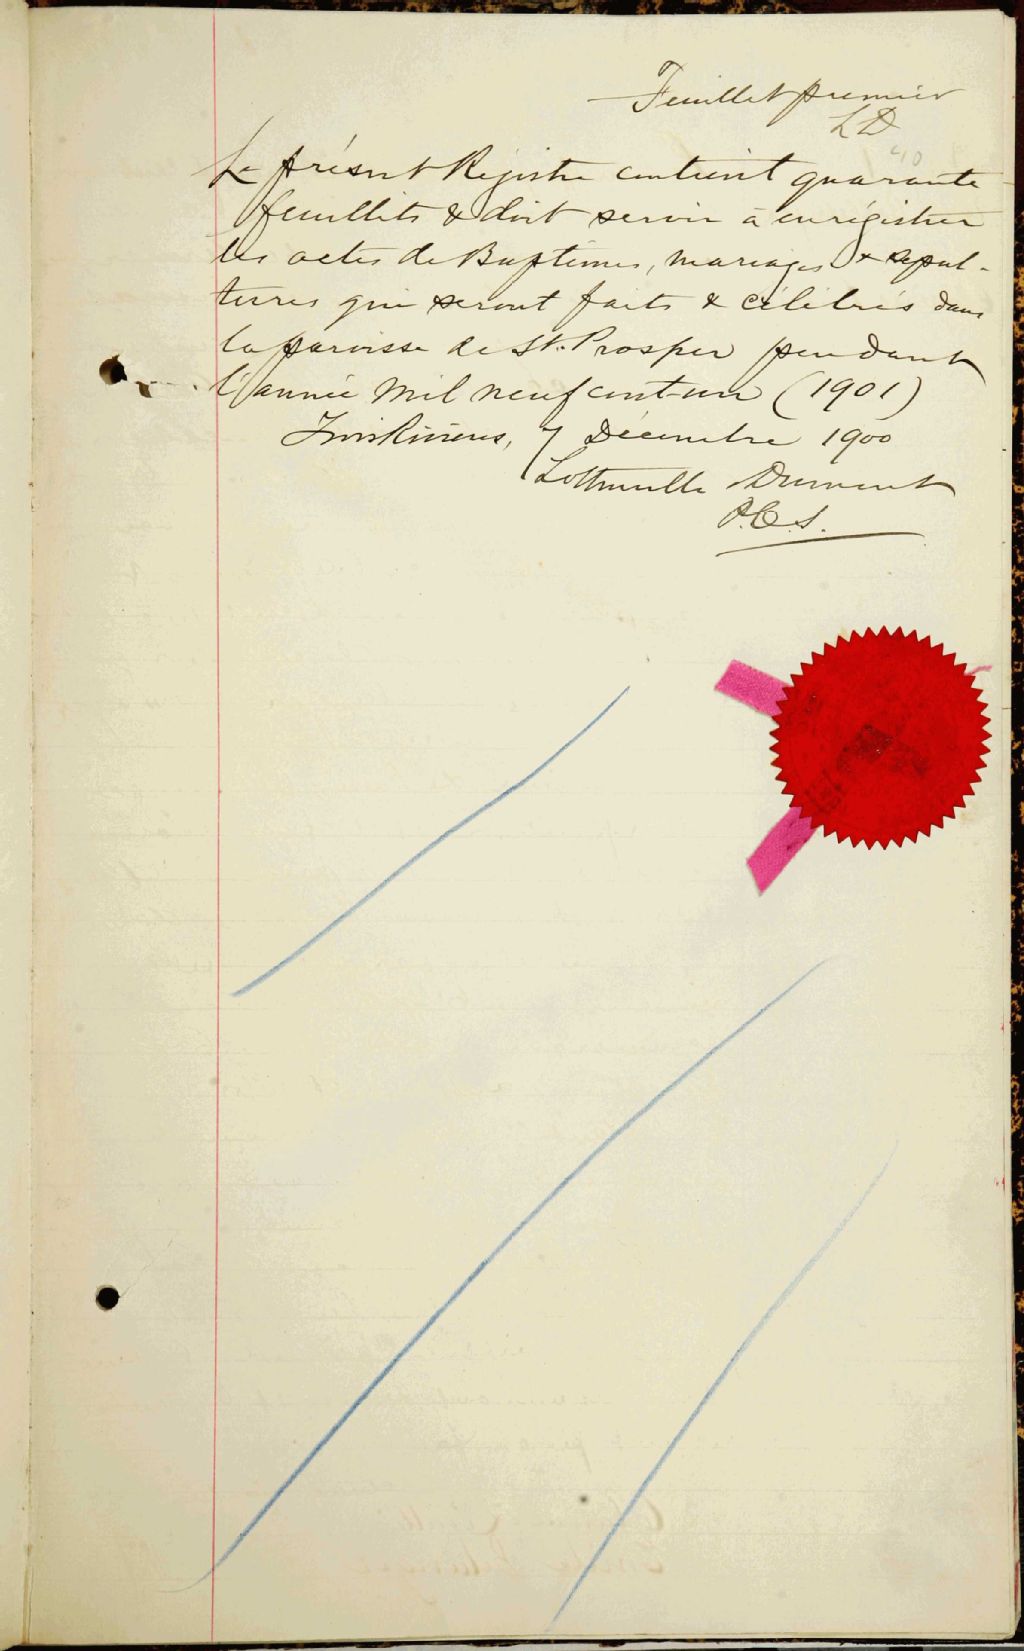 Feuillet premier
LD
40
Le présent Régistre contient quarante
feuillets & doit servir à enrégistrer
les actes de Baptêmes, mariages & sépul-
tures qui seront faits & célébrés dans
la paroisse de St. Prosper pendant
l'année mil neuf cent-un (1901)
Trois Rivières, 7 Décembre 1900
Lottinville Dument
P.C.S.